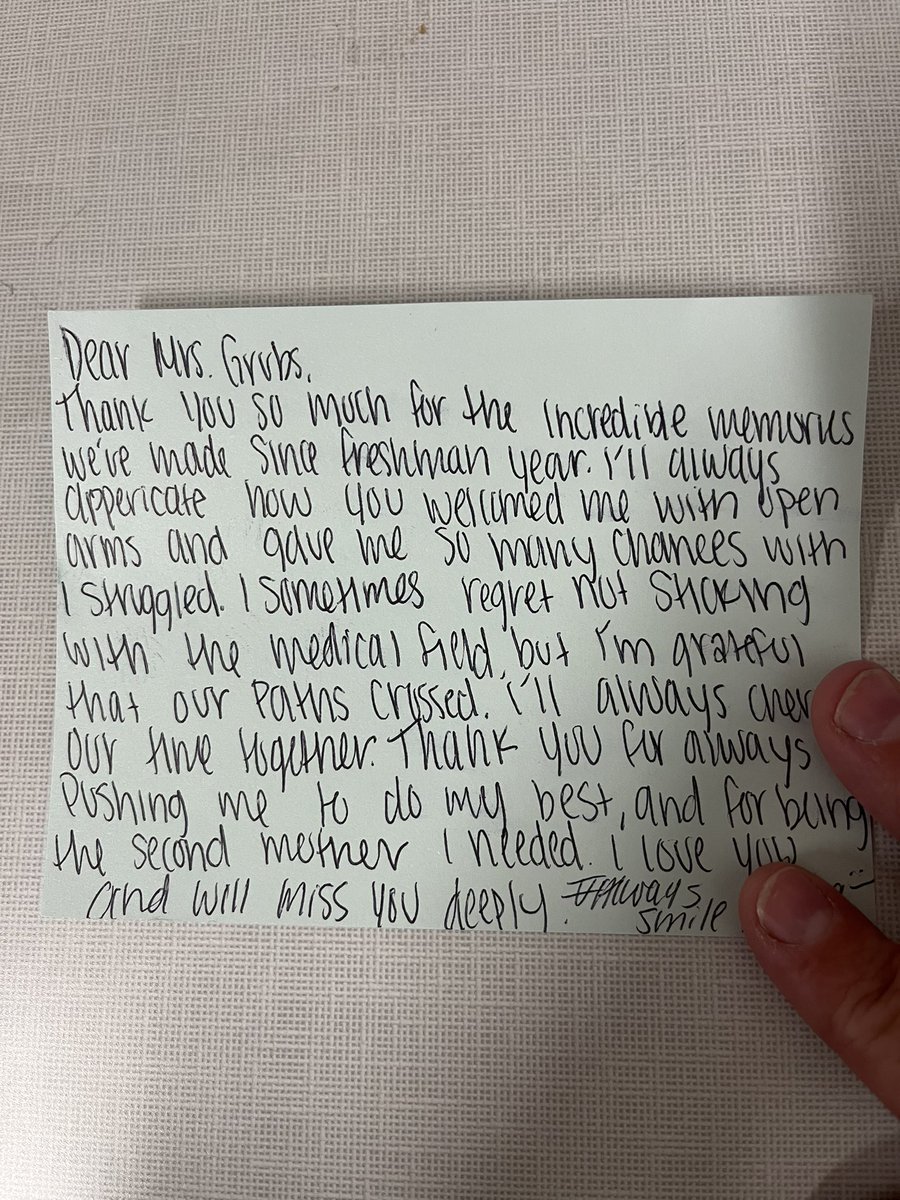 Dear Mrs. Grubs,
Thank you so much for the incredible memories
we've made since freshman year. I'll always
appericate how you welcomed me with open
arms and gave me so many chances with
I struggled. I sometimes regret not sticking
with the medical field, but I'm grateful
that our paths crossed. I'll always cher
our time together. Thank you for always
pushing me to do my best, and for being
the second mother I needed. I love you
and will miss you deeply. Always
smile